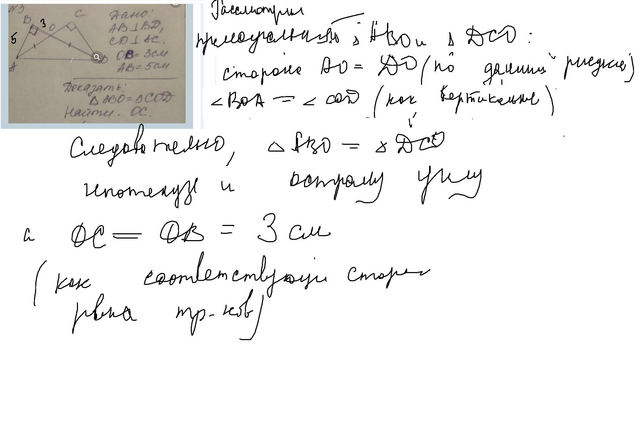 №3
Дано:
AB⊥BD,
CD⊥AC.
OB=3см
AB=5см
Доказать:
△ABO=△COD
Найти: OC.
B 3 O C
5
A
Рассмотрим
прямоугольные △ABO и △DCO:
сторона AO = DO (по данным рисунка)
∠BOA = ∠COD (как вертикальные)
Следовательно, △ABO = △DCO
гипотенузе и острому углу
а OC = OB = 3 см
(как соответствующие сторон
равна тр-ков)